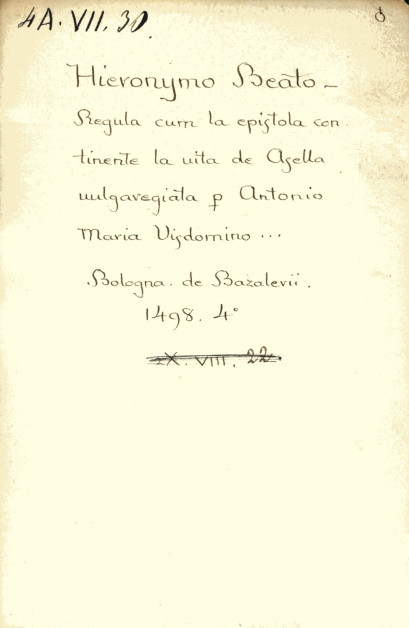 4A. VII. 30.
Hieronymo Beato –
Regula cum la epistola con
tinente la uita de Asella
uulgaregiata ꝑ Antonio
Maria Visdomino ...
Bologna. de Bazalerii.
1498. 4°
VIII. 22.